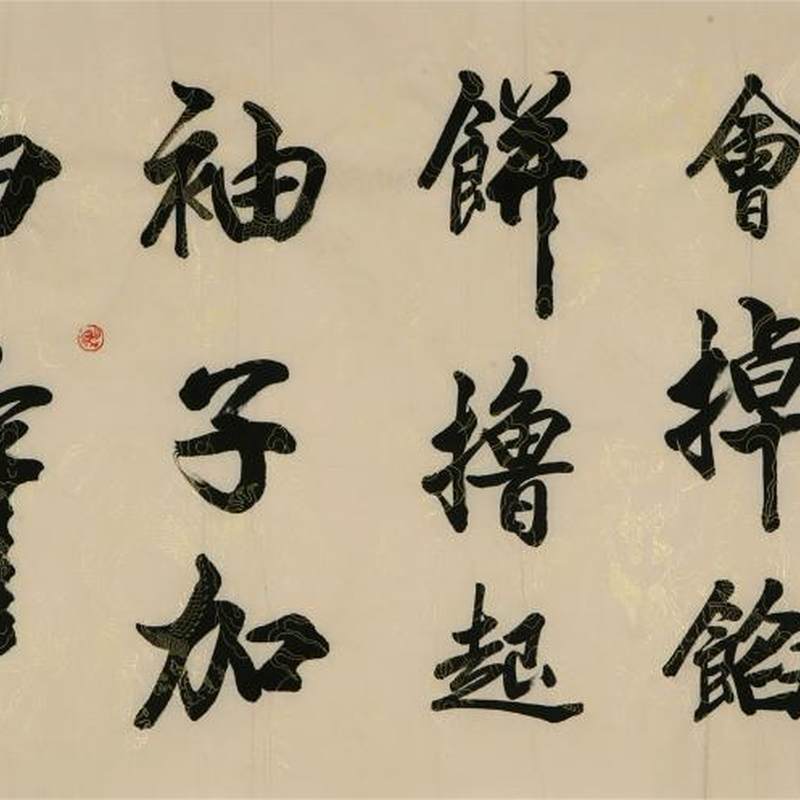 會掉餡
餅擼起
袖子加